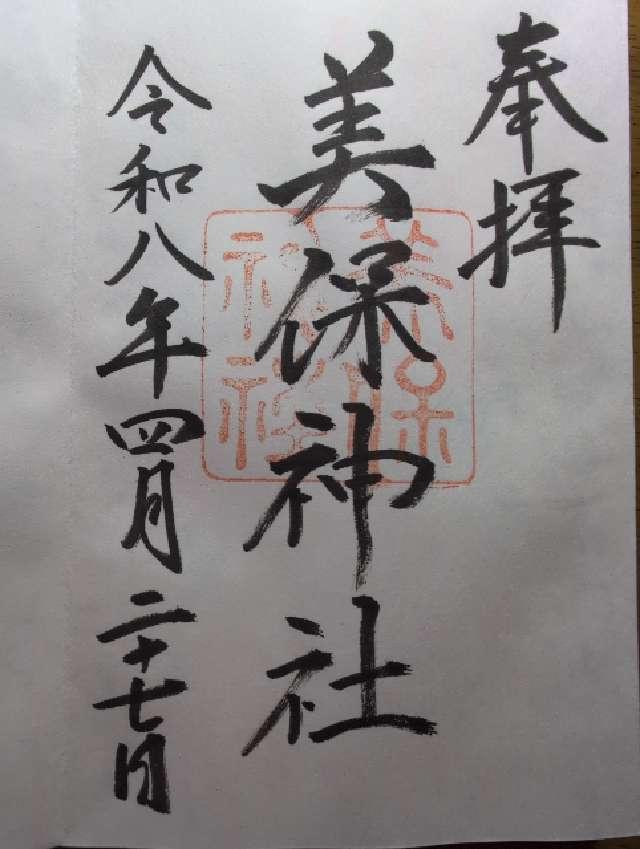 奉拝
美保神社
美保
神社
令和八年四月二十七日